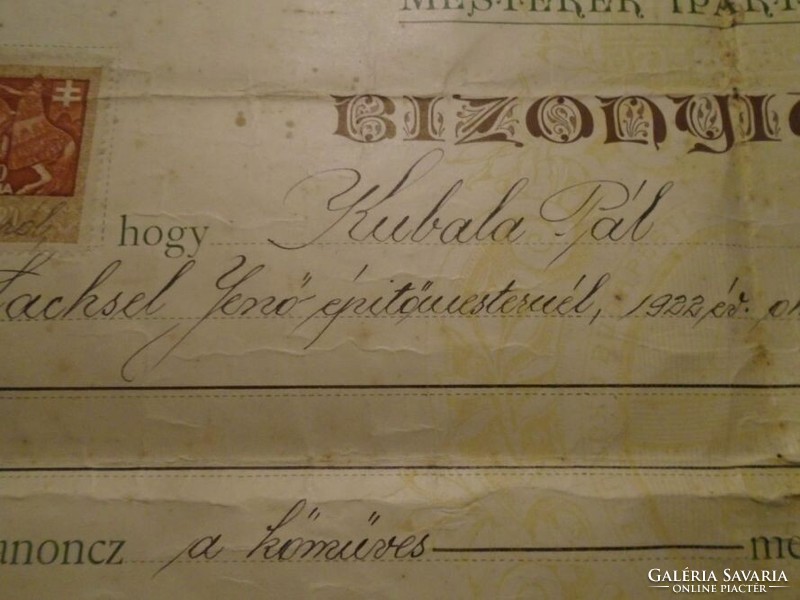 MESTEREK IPART
BIZONYI
hogy Kubala Pál
Sachsel Jenő építőmesternél, 1922 év. ok
nnoncz a kőműves me
GALÉRIA SAVARIA
ONLINE PIACTÉR